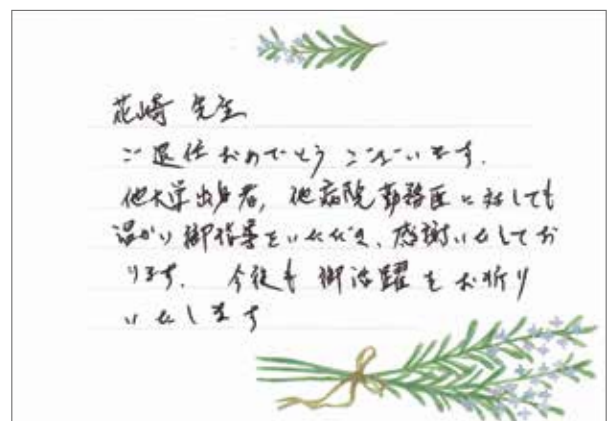 花崎 先生
ご退任おめでとうございます.
他大学出身者, 他病院勤務医に対しても
温かい御指導をいただき、感謝いたしてお
ります. 今後も御活躍をお祈り
いたします